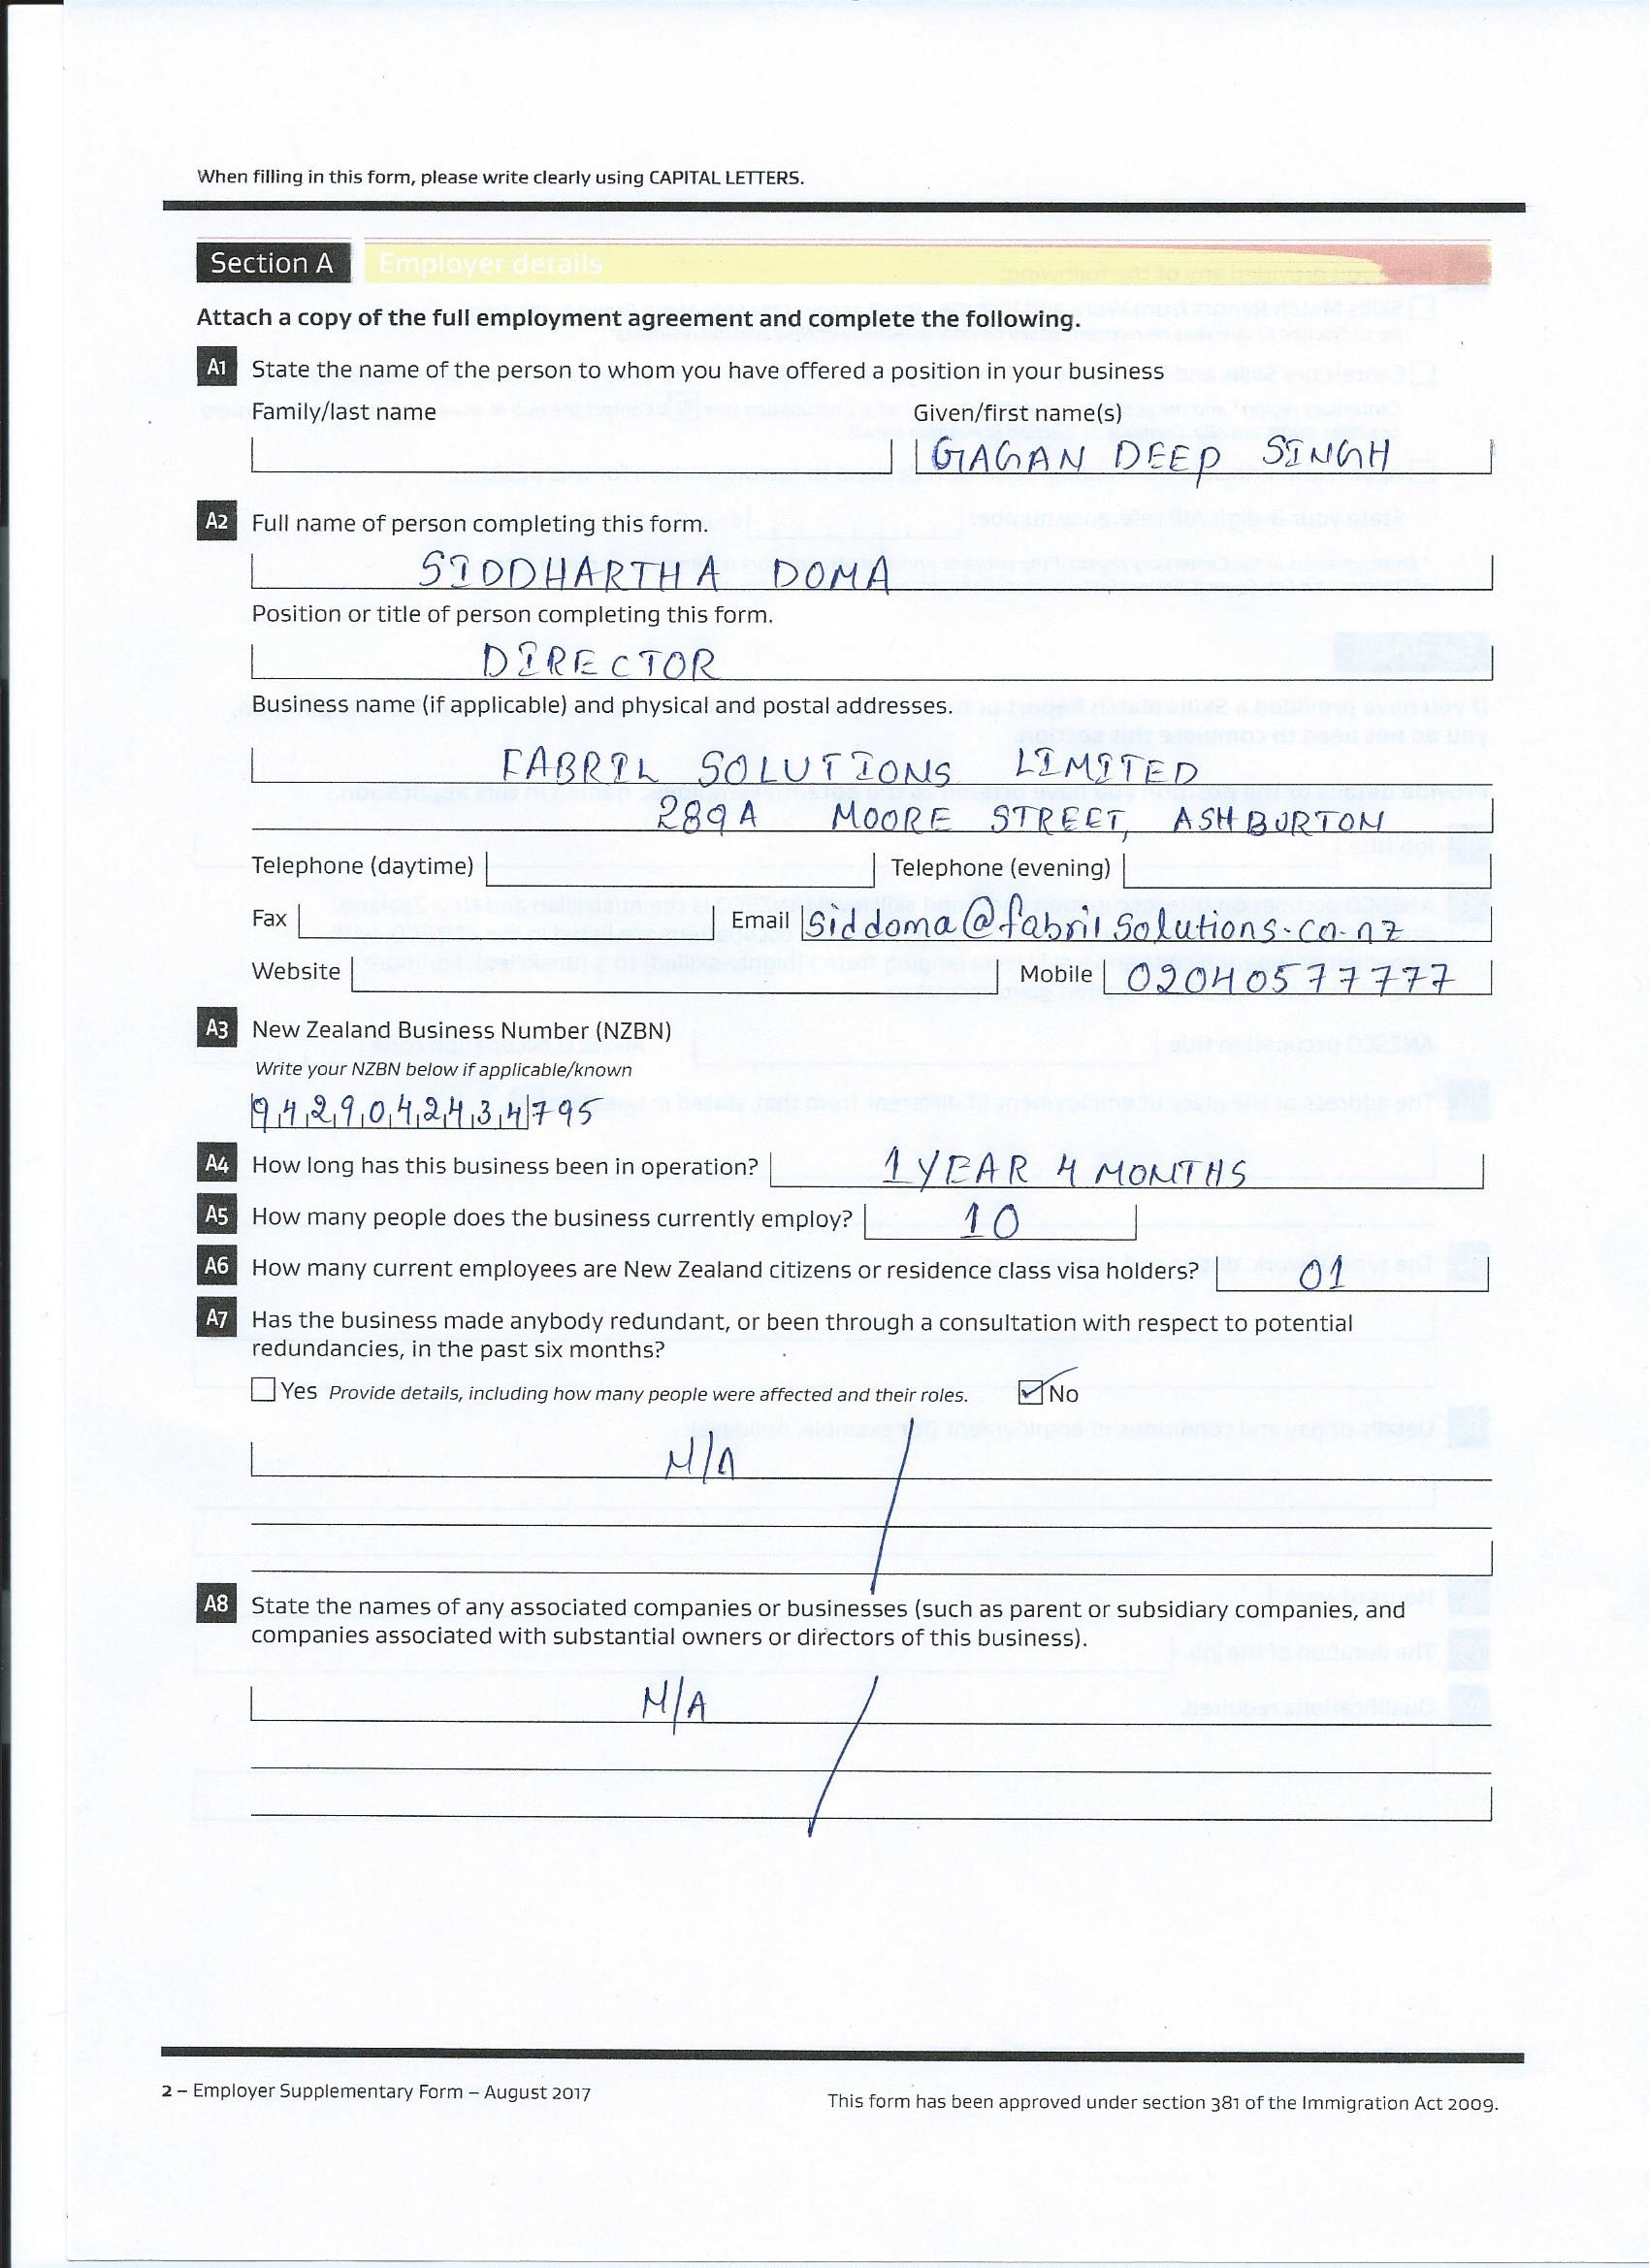 When filling in this form, please write clearly using CAPITAL LETTERS.
Section A Employer details
Attach a copy of the full employment agreement and complete the following.
A1 State the name of the person to whom you have offered a position in your business
Family/last name Given/first name(s)
GAGAN DEEP SINGH
A2 Full name of person completing this form.
SIDDHARTHA DOMA
Position or title of person completing this form.
DIRECTOR
Business name (if applicable) and physical and postal addresses.
FABRIL SOLUTIONS LIMITED
289A MOORE STREET, ASHBURTON
Telephone (daytime) Telephone (evening)
Fax Email siddoma@fabrilsolutions.co.nz
Website Mobile 02040577777
A3 New Zealand Business Number (NZBN)
Write your NZBN below if applicable/known
9429042434795
A4 How long has this business been in operation? 1 YEAR 4 MONTHS
A5 How many people does the business currently employ? 10
A6 How many current employees are New Zealand citizens or residence class visa holders? 01
A7 Has the business made anybody redundant, or been through a consultation with respect to potential
redundancies, in the past six months?
Yes Provide details, including how many people were affected and their roles. No
N/A
A8 State the names of any associated companies or businesses (such as parent or subsidiary companies, and
companies associated with substantial owners or directors of this business).
N/A
2 – Employer Supplementary Form – August 2017
This form has been approved under section 381 of the Immigration Act 2009.